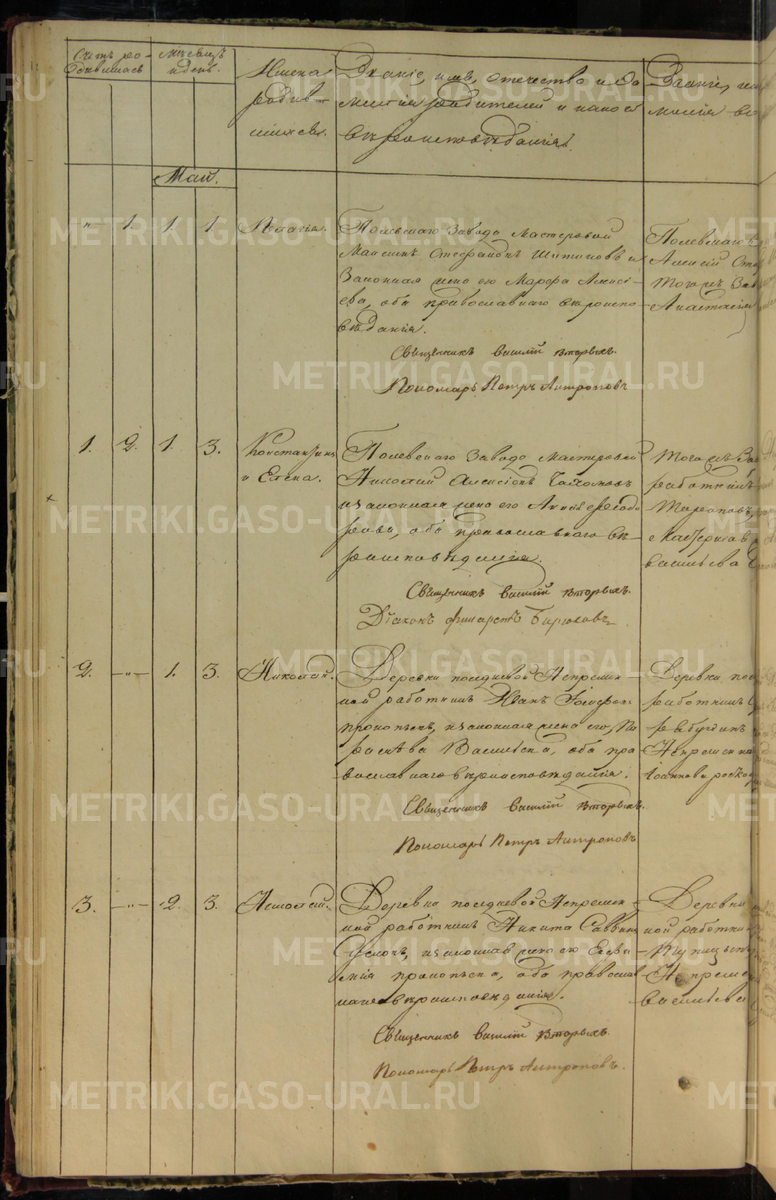 Счетъ ро-
дившихся
Мѣсяцъ
и день.
Имена
родив-
шихся.
Званіе, имя, отчество и фа
милія родителей и какого
вѣроисповѣданія.
Званіе, им
милія во
Май.
" 1. 1 1 Пелагія.
Полевскаго Завода Мастеровой
Максимъ Стефановъ и
Законная жена его Марфа Алексѣ-
ева, оба православнаго вѣроиспо-
вѣданія.
Священникъ Василій Вторыхъ.
Пономарь Петръ Антроповъ
Полевскаго
Алексѣй Сте
Тогожъ Зав
Анастасія
1. 2. 1. 3. Константинъ
и Елена.
Полевскаго Завода мастеровой
Николай Алексѣевъ
и законная жена его Анна Ѳеодо
рова, оба православнаго вѣ-
роисповѣданія.
Священникъ Василій Вторыхъ.
Діаконъ Филаретъ Бирюковъ
Тогожъ За
работникъ
Васильева
2. -"- 1. 3. Николай.
Деревни Полдневой Непремѣн
ной работникъ Иванъ
Прокопьевъ, и законная жена его, Па
раскева Васильева, оба пра
вославнаго вѣроисповѣданія.
Священникъ Василій Вторыхъ.
Пономарь Петръ Антроповъ
Деревни Пол
работникъ
Непремѣнна
Іоаннова
3. -"- 2. 3. Алексѣй.
Деревни Полдневой Непремѣн-
ной работникъ Никита Саввинъ
и законная жена его Евѳи
мія Прокопьева, оба православ
наго вѣроисповѣданія.
Священникъ Василій Вторыхъ.
Пономарь Петръ Антроповъ.
Деревни
ной работни
Непремѣ
Васильева
METRIKI.GASO-URAL.RU